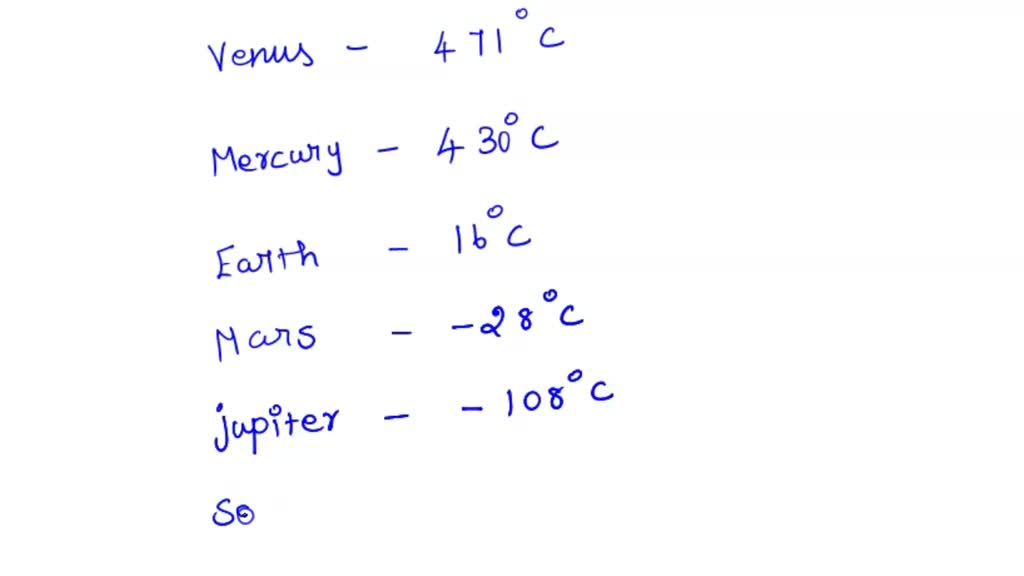 Venus - 471°C
Mercury - 430°C
Earth - 16°C
Mars - -28°C
jupiter - -108°C
So